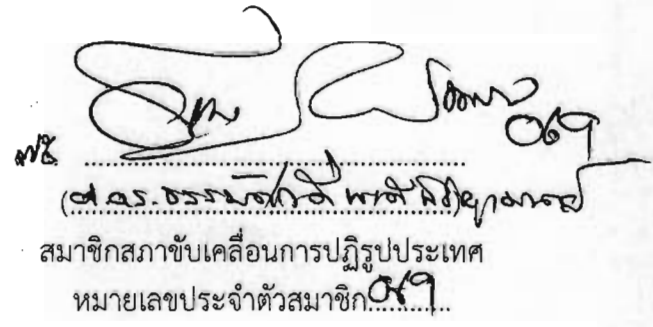 069
(ศ.ดร. ธรรมศักดิ์ พงศ์พิชญามาตย์)
สมาชิกสภาขับเคลื่อนการปฏิรูปประเทศ
หมายเลขประจำตัวสมาชิก..069.......